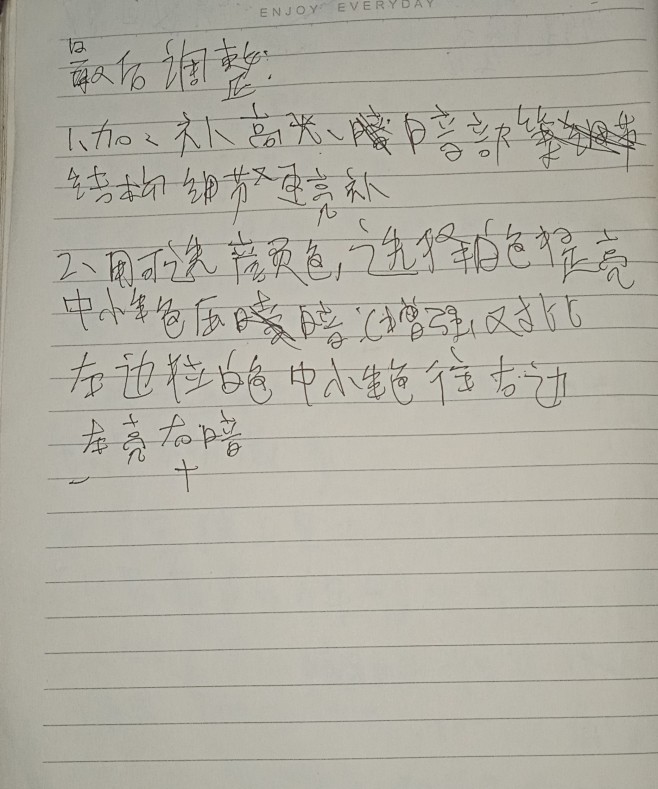 ENJOY EVERYDAY
最后调整:
1、加、补高光、暗部
结构细节更亮补
2、用可选颜色,选择白色提亮
中性色压暗(增强对比
左边拉白色中性色往右边
左亮右暗
- +